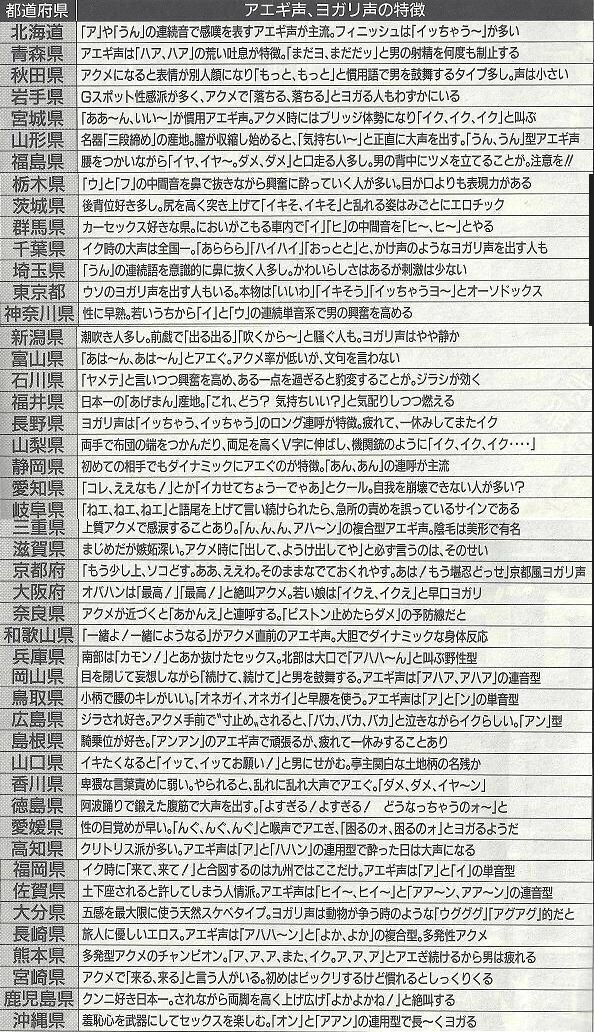 都道府県 アエギ声、ヨガリ声の特徴
北海道 「ア」や「うん」の連続音で感嘆を表すアエギ声が主流。フィニッシュは「イッちゃう〜」が多い
青森県 アエギ声は「ハア、ハア」の荒い吐息が特徴。「まだヨ、まだだッ」と男の射精を何度も制止する
秋田県 アクメになると表情が別人顔になり「もっと、もっと」と慣用語で男を鼓舞するタイプ多し。声は小さい
岩手県 Gスポット性感派が多く、アクメで「落ちる、落ちる」とヨガる人もわずかにいる
宮城県 「ああ〜ん、いい〜」が慣用アエギ声。アクメ時にはブリッジ体勢になり「イク、イク、イク」と叫ぶ
山形県 名器「三段締め」の産地。膣が収縮し始めると、「気持ちい〜」と正直に大声を出す。「うん、うん」型アエギ声
福島県 腰をつかいながら「イヤ、イヤ〜。ダメ、ダメ」と口走る人多し。男の背中にツメを立てることが。注意を!!
栃木県 「ウ」と「フ」の中間音を鼻で抜きながら興奮に酔っていく人が多い。目が口よりも表現力がある
茨城県 後背位好き多し。尻を高く突き上げて「イキそ、イキそ」と乱れる姿はみごとにエロチック
群馬県 カーセックス好きな県。においがこもる車内で「イ」「ヒ」の中間音を「ヒ〜、ヒ〜」とやる
千葉県 イク時の大声は全国一。「あららら」「ハイハイ」「おっとと」と、かけ声のようなヨガり声を出す人も
埼玉県 「うん」の連続語を意識的に鼻に抜く人多し。かわいらしさはあるが刺激は少ない
東京都 ウソのヨガリ声を出す人もいる。本物は「いいわ」「イキそう」「イッちゃうヨ〜」とオーソドックス
神奈川県 性に早熟。若いうちから「イ」と「ウ」の連続単音系で男の興奮を高める
新潟県 潮吹き人多し。前戯で「出る出る」「吹くから〜」と騒ぐ人も。ヨガリ声はやや静か
富山県 「あは〜ん、あは〜ん」とアエぐ。アクメ率が低いが、文句を言わない
石川県 「ヤメテ」と言いつつ興奮を高め、ある一点を過ぎると豹変することが。ジラシが効く
福井県 日本一の「あげまん」産地。「これ、どう? 気持ちいい?」と気配りしつつ燃える
長野県 ヨガリ声は「イッちゃう、イッちゃう」のロング連呼が特徴。疲れて、一休みしてまたイク
山梨県 両手で布団の端をつかんだり、両足を高くV字に伸ばし、機関銃のように「イク、イク、イク‥‥」
静岡県 初めての相手でもダイナミックにアエぐのが特徴。「あん、あん」の連呼が主流
愛知県 「コレ、ええなも!」とか「イカせてちょうーでゃあ」とクール。自我を崩壊できない人が多い?
岐阜県 「ねエ、ねエ、ねエ」と語尾を上げて言い続けられたら、急所の責めを誤っているサインである
三重県 上質アクメで感涙することあり。「ん、ん、ん、アハ〜ン」の複合型アエギ声。陰毛は美形で有名
滋賀県 まじめだが嫉妬深い。アクメ時に「出して、ようけ出してや」と必ず言うのは、そのせい
京都府 「もう少し上、ソコどす。ああ、ええわ。そのままなでておくれやす。あは!もう堪忍どっせ」京都風ヨガリ声
大阪府 オバハンは「最高!」「最高!」と絶叫アクメ。若い娘は「イクえ、イクえ」と早口ヨガリ
奈良県 アクメが近づくと「あかんえ」と連呼する。「ピストン止めたらダメ」の予防線だと
和歌山県 「一緒よ!一緒にようなる」がアクメ直前のアエギ声。大胆でダイナミックな身体反応
兵庫県 南部は「カモン!」とあか抜けたセックス。北部は大口で「アハハ〜ん」と叫ぶ野性型
岡山県 目を閉じて妄想しながら「続けて、続けて」と男を鼓舞する。アエギ声は「アハア、アハア」の連音型
鳥取県 小柄で腰のキレがいい。「オネガイ、オネガイ」と早腰を使う。アエギ声は「ア」と「ン」の単音型
広島県 ジラされ好き。アクメ手前で〝寸止め〟されると、「バカ、バカ、バカ」と泣きながらイクらしい。「アン」型
島根県 騎乗位が好き。「アンアン」のアエギ声で頑張るが、疲れて一休みすることあり
山口県 イキたくなると「イッて、イッてお願い!」と男にせがむ。亭主関白な土地柄の名残か
香川県 卑猥な言葉責めに弱い。やられると、乱れに乱れ大声でアエぐ。「ダメ、ダメ、イヤ〜ン」
徳島県 阿波踊りで鍛えた腹筋で大声を出す。「よすぎる!よすぎる! どうなっちゃうのォ〜」と
愛媛県 性の目覚めが早い。「んぐ、んぐ、んぐ」と喉声でアエぎ、「困るのォ、困るのォ」とヨガるようだ
高知県 クリトリス派が多い。アエギ声は「ア」と「ハハン」の連用型で酔った日は大声になる
福岡県 イク時に「来て、来て!」と合図するのは九州ではここだけ。アエギ声は「ア」と「イ」の単音型
佐賀県 土下座されると許してしまう人情派。アエギ声は「ヒイ〜、ヒイ〜」と「アア〜ン、アア〜ン」の連音型
大分県 五感を最大限に使う天然スケベタイプ。ヨガリ声は動物が争う時のような「ウグググ」「アグアグ」的だと
長崎県 旅人に優しいエロス。アエギ声は「アハハ〜ン」と「よか、よか」の複合型。多発性アクメ
熊本県 多発型アクメのチャンピオン。「ア、ア、ア、また、イク。ア、ア、ア」とアエギ続けるから男は疲れる
宮崎県 アクメで「来る、来る」と言う人がいる。初めはビックリするけど慣れるとしっくりくる
鹿児島県 クンニ好き日本一。されながら両脚を高く上げ広げ「よかよかね!」と絶叫する
沖縄県 羞恥心を武器にしてセックスを楽しむ。「オン」と「アアン」の連用型で長〜くヨガる